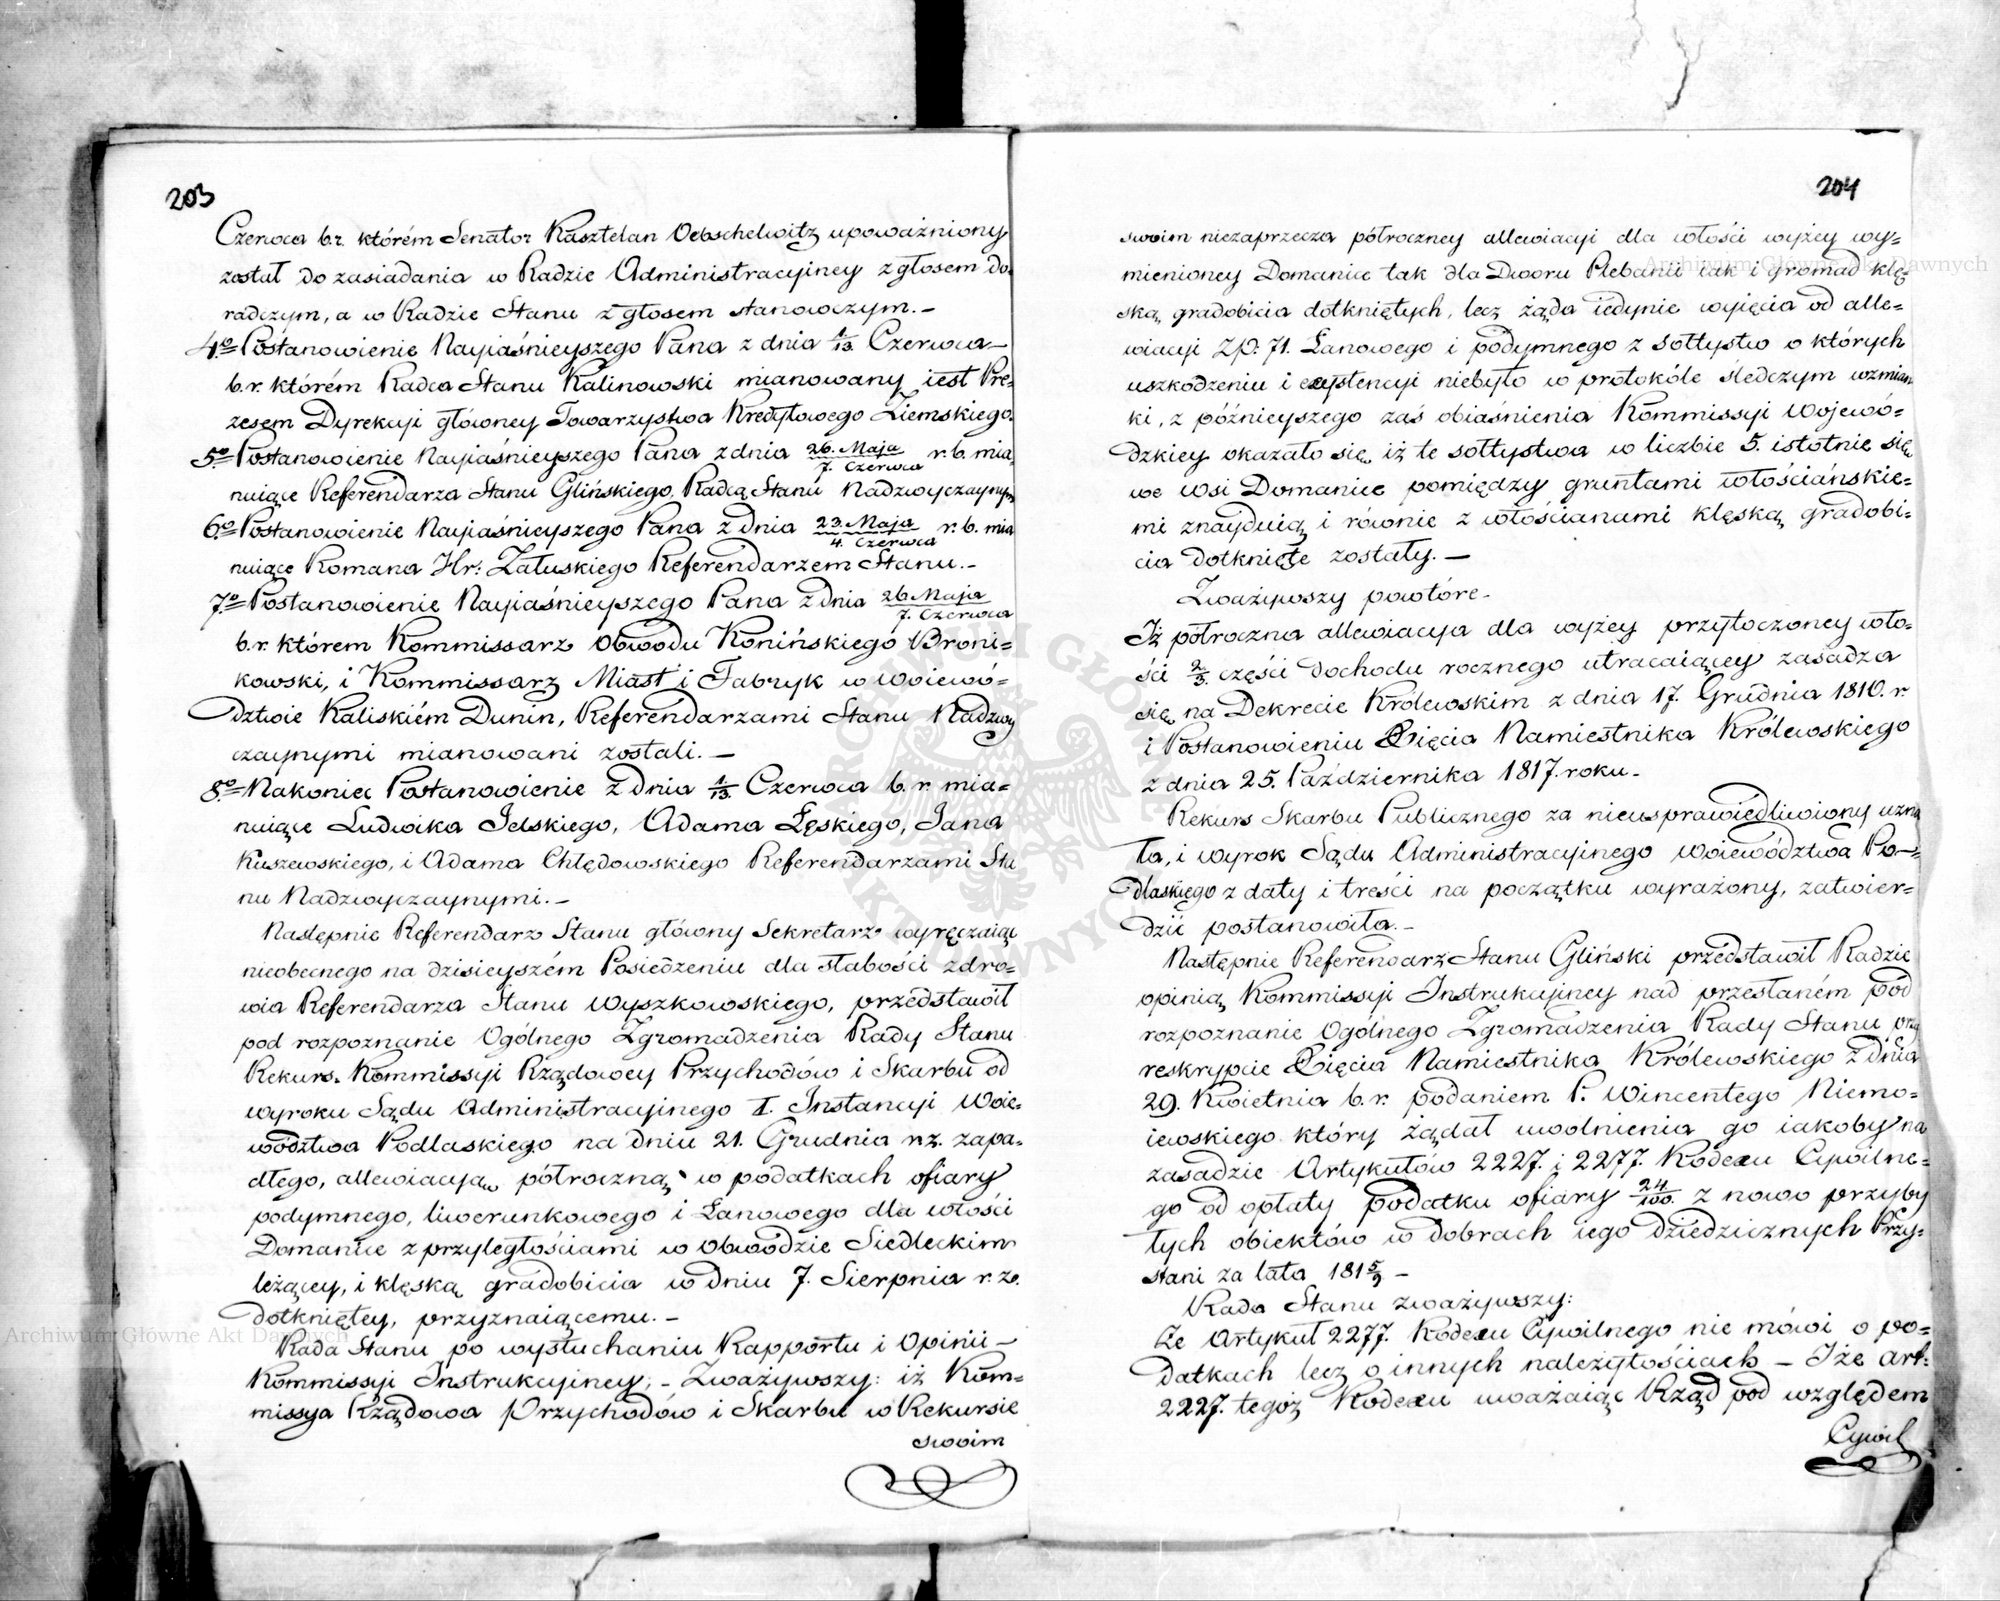 203
Czerwca b.r. którém Senator Kasztelan Oebschelwitz upoważniony
został do zasiadania w Radzie Administracyiney z głosem do-
radczym, a w Radzie Stanu z głosem stanowczym. –
4º Postanowienie Nayiaśnieyszego Pana z dnia 1/13. Czerwca –
b.r. którém Radca Stanu Kalinowski mianowany iest Pre-
zesem Dyrekcyi główney Towarzystwa Kredytowego Ziemskiego.
5º Postanowienie Nayiaśnieyszego Pana z dnia 26. Maja / 7. Czerwca r. b. mia-
nuiące Referendarza Stanu Glińskiego, Radcą Stanu Nadzwyczaynym
6º Postanowienie Nayiaśnieyszego Pana z dnia 23. Maja / 4. Czerwca r. b. mia
nuiące Romana Hr: Załuskiego Referendarzem Stanu. –
7º Postanowienie Nayiaśnieyszego Pana z dnia 26 Maja / 7. Czerwca
b.r. którem Kommissarz Obwodu Konińskiego Broni=
kowski, i Kommissarz Miast i Fabryk w Woiewó-
dztwie Kaliskiém Dunin, Referendarzami Stanu Nadzwy
czaynymi mianowani zostali. –
8º Nakoniec Postanowienie z dnia 1/13. Czerwca b. r. mia=
nuiące Ludwika Jelskiego, Adama Łęskiego, Jana
Kuszewskiego, i Adama Chłędowskiego Referendarzami Sta
nu Nadzwyczaynymi. –
Następnie Referendarz Stanu główny Sekretarz wyręczaiąc
nieobecnego na dzisieyszém Posiedzeniu dla słabości zdro=
wia Referendarza Stanu Wyszkowskiego, przedstawił
pod rozpoznanie Ogólnego Zgromadzenia Rady Stanu
Rekurs Kommissyi Rządowey Przychodów i Skarbu od
wyroku Sądu Administracyinego I. Instancyi Woie=
wództwa Podlaskiego na dniu 21. Grudnia r.z. zapa-
dłego, allewiacyą półroczną w podatkach ofiary
podymnego, liwerunkowego i Łanowego dla włości
Domanice z przyległościami w Obwodzie Siedleckim
leżącey, i klęską gradobicia w dniu 7. Sierpnia r. z.
dotkniętey, przyznaiącemu. –
Rada Stanu po wysłuchaniu Rapportu i Opinii –
Kommissyi Instrukcyiney, – Zważywszy: iż Kom=
missya Rządowa Przychodów i Skarbu w Rekursie
swoim
204
swoim niezaprzecza półroczney allewiacyi dla włości wyżey wy=
mienioney Domanice tak dla Dworu Plebanii iak i gromad klę-
ską gradobicia dotkniętych, lecz żąda iedynie wyięcia od alle=
wiacyi Zp. 71. Łanowego i podymnego z sołtystw o których
uszkodzeniu i exystencyi niebyło w protokóle śledczym wzmian
ki, z późnieyszego zaś obiaśnienia Kommissyi Wojewó=
dzkiey okazało się, iż te sołtystwa w liczbie 5. istotnie się
we Wsi Domanice pomiędzy gruntami włościańskie=
mi znayduią i równie z włościanami klęską gradobi=
cia dotknięte zostały. –
Zważywszy powtóre –
Iż półroczna allewiacya dla wyżey przytoczoney wło-
ści 2/3. części dochodu rocznego utracaiącey zasadza
się na Dekrecie Królewskim z dnia 17. Grudnia 1810. r.
i Postanowieniu Xięcia Namiestnika Królewskiego
z dnia 25. Października 1817. roku –
Rekurs Skarbu Publicznego za nieusprawiedliwiony uzna
ła, i wyrok Sądu Administracyinego Woiewództwa Po-
dlaskiego z daty i treści na początku wyrażony, zatwier-
dzić postanowiła. –
Następnie Referendarz Stanu Gliński przedstawił Radzie
opinią Kommissyi Instrukcyiney nad przesłaném pod
rozpoznanie Ogólnego Zgromadzenia Rady Stanu przy
reskrypcie Xięcia Namiestnika Królewskiego z dnia
29. Kwietnia b. r. podaniem P. Wincentego Niemo=
iewskiego który żądał uwolnienia go iakoby na
zasadzie Artykułów 2227. i 2277. Kodexu Cywilne=
go od opłaty podatku ofiary 24/100. z nowo przyby
tych obiektów w dobrach iego dziedzicznych Przy-
stani za lata 181 5/9 –
Rada Stanu zważywszy:
Że Artykuł 2277. Kodexu Cywilnego nie mówi o po=
datkach lecz o innych należytościach – I że art:
2227. tegoż Kodexu uważaiąc Rząd pod względem
Cywil
Archiwum Główne Akt Dawnych
Archiwum Główne Akt Dawnych
ARCHIWUM GŁÓWNE AKT DAWNYCH